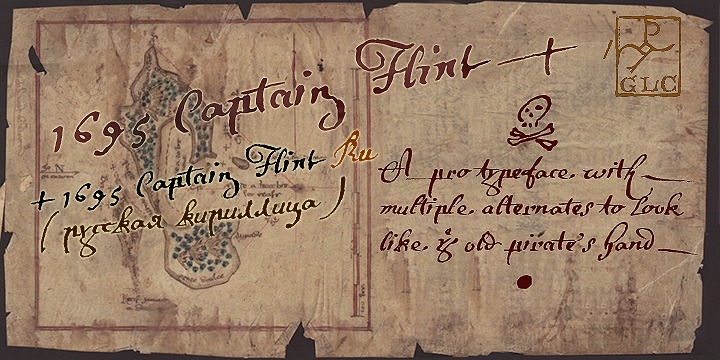 1695 Captain Flint
+ 1695 Captain Flint Ru
(русская кириллица)
A pro typeface. with
multiple. alternates to look
like. ye old pirate's hand
GLC